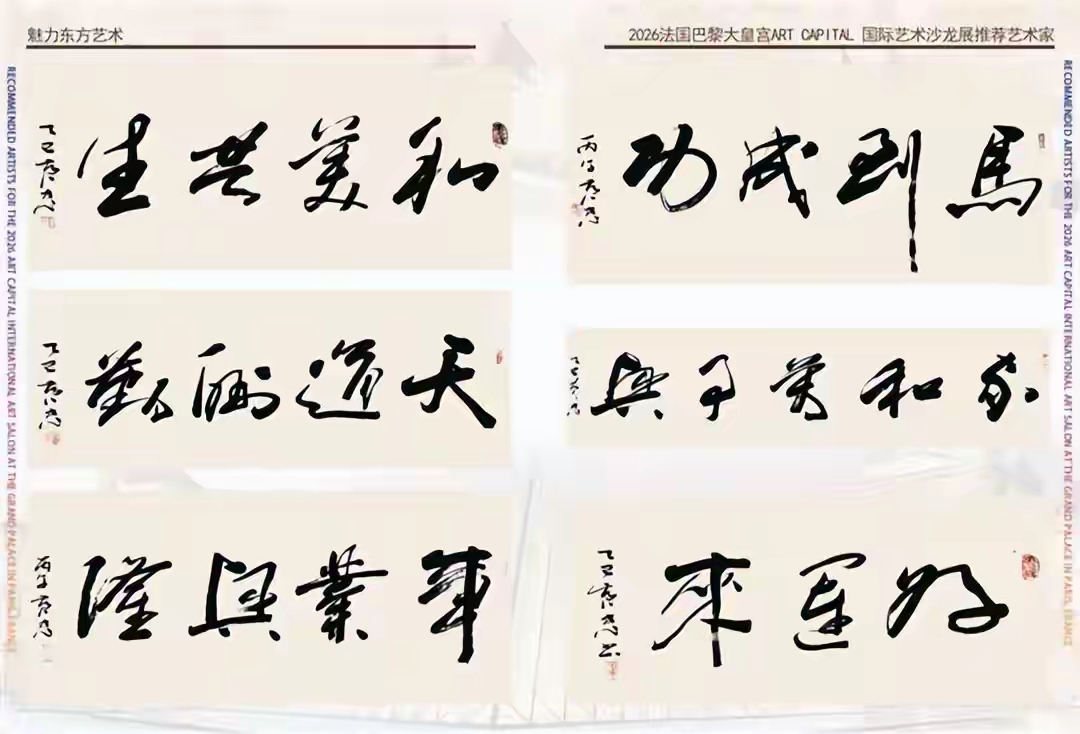 魅力东方艺术
2026法国巴黎大皇宫ART CAPITAL 国际艺术沙龙展推荐艺术家
RECOMMENDED ARTISTS FOR THE 2026 ART CAPITAL INTERNATIONAL ART SALON AT THE GRAND PALACE IN PARIS, FRANCE
和美共生
乙巳
天道酬勤
乙巳
事業興隆
丙午
馬到成功
丙午
家和萬事興
乙巳
好運來
乙巳
RECOMMENDED ARTISTS FOR THE 2026 ART CAPITAL INTERNATIONAL ART SALON AT THE GRAND PALACE IN PARIS, FRANCE